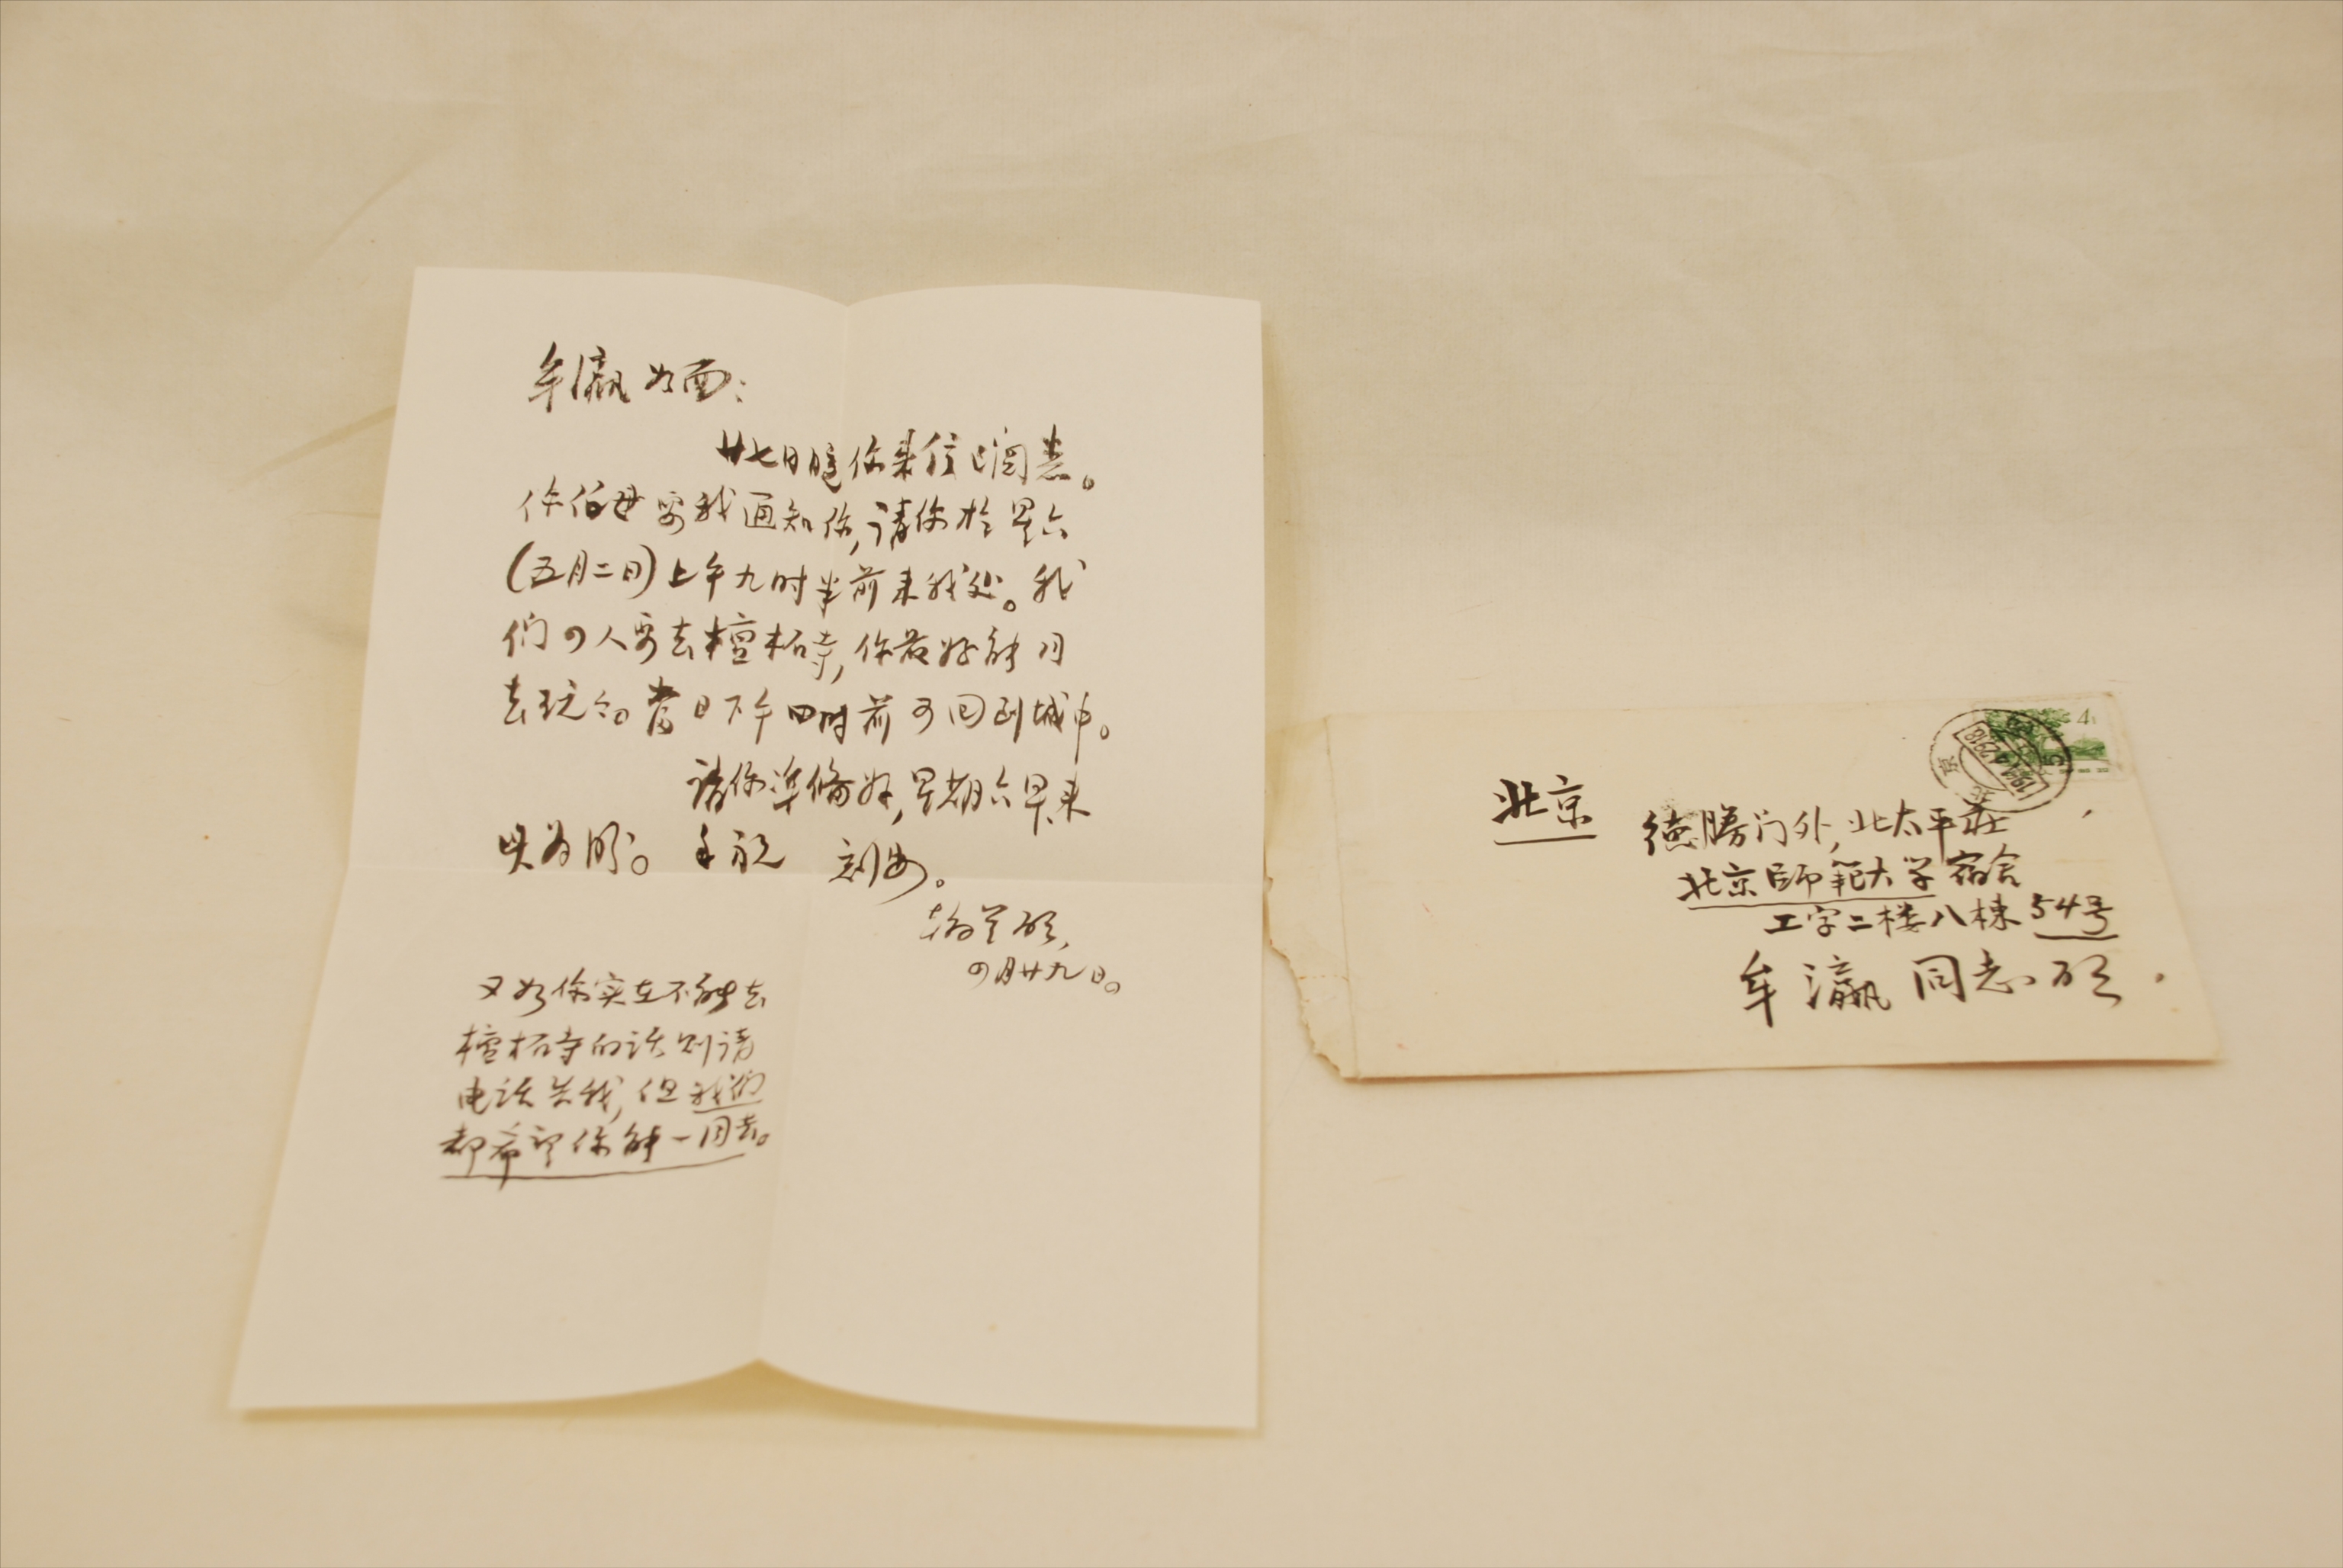 牟瀛如面：
廿七日晚你来信已阅悉。
你伯母要我通知你，请你於星六
（五月二日）上午九时半前来我处。我
们四人要去檀柘寺，你最好能同
去玩？当日下午四时前可回到城中。
请你準備好，星期六早来
是为盼。手祝 刻安。
四月廿九日。
又如你实在不能去
檀柘寺的话则请
电话告我，但我们
都希望你能一同去。
北京
德勝门外，北太平莊
北京师範大学宿舍
工字二楼八棟54号
牟瀛同志启
4
北京